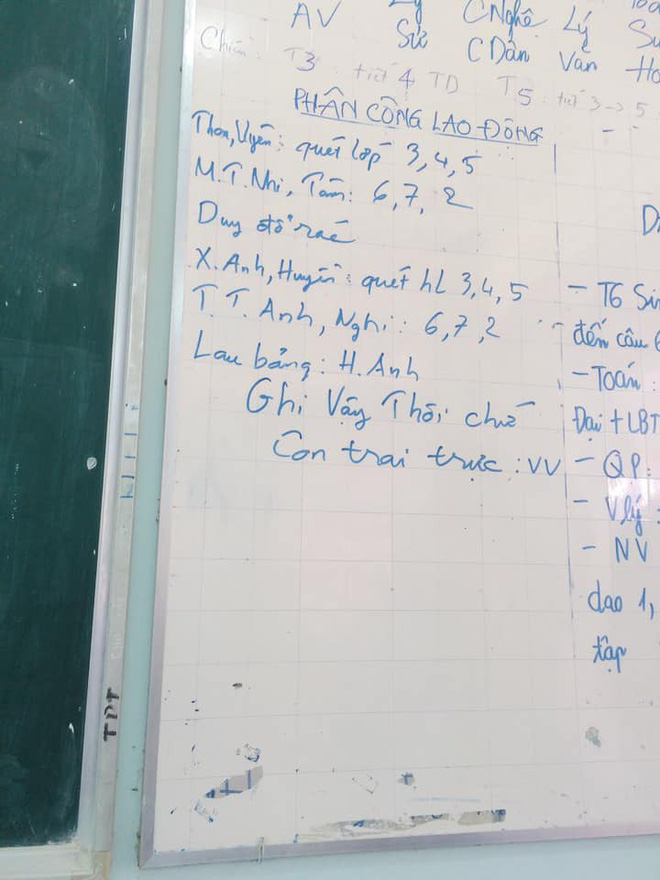 AV Sử CNghệ Lý
CDân Văn
Chiều: T3: tiết 4 TD T5: tiết 3 → 5
PHÂN CÔNG LAO ĐỘNG
Uyên: quét lớp 3, 4, 5
M.T.Nhi, Tâm: 6, 7, 2
Duy đổ rác
X.Anh, Huyền: quét hl 3, 4, 5
T.T.Anh, Nghi: 6, 7, 2
Lau bảng: H.Anh
Ghi Vậy Thôi chứ
Con trai trực: VV
- T6
đến câu
- Toán:
Đại + LBT
- QP:
- Vlý
- NV
dao 1,
tập
TDT